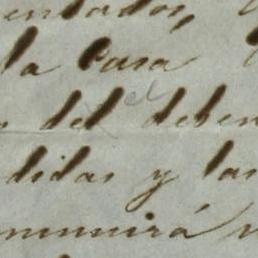 entados,
la Casa
el
del deben
didas y las
munirá